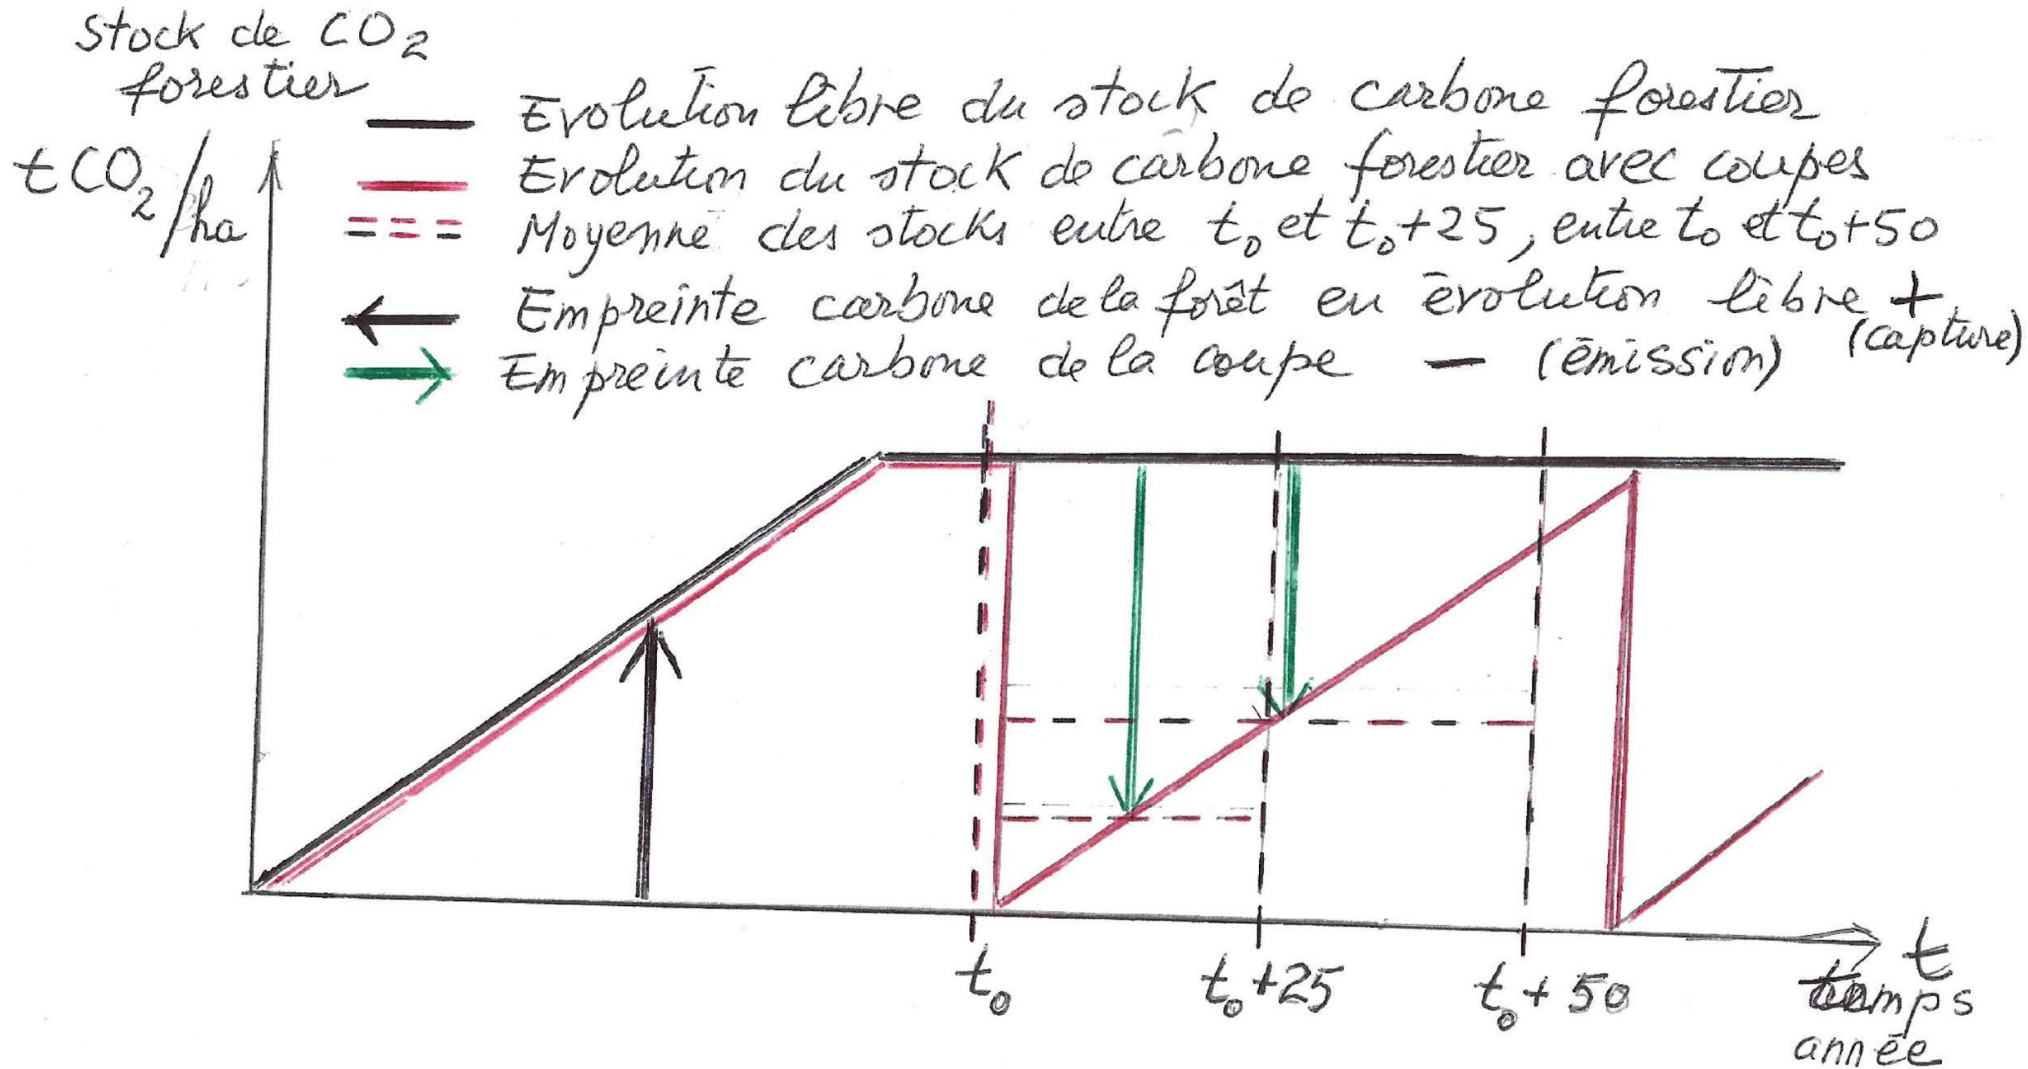 stock de CO2
forestier
tCO2/ha
Evolution libre du stock de carbone forestier
Evolution du stock de carbone forestier avec coupes
Moyenne des stocks entre t0 et t0+25, entre t0 et t0+50
Empreinte carbone de la forêt en évolution libre +
(capture)
Empreinte carbone de la coupe — (émission)
t0
t0+25
t0+50
t
temps
année